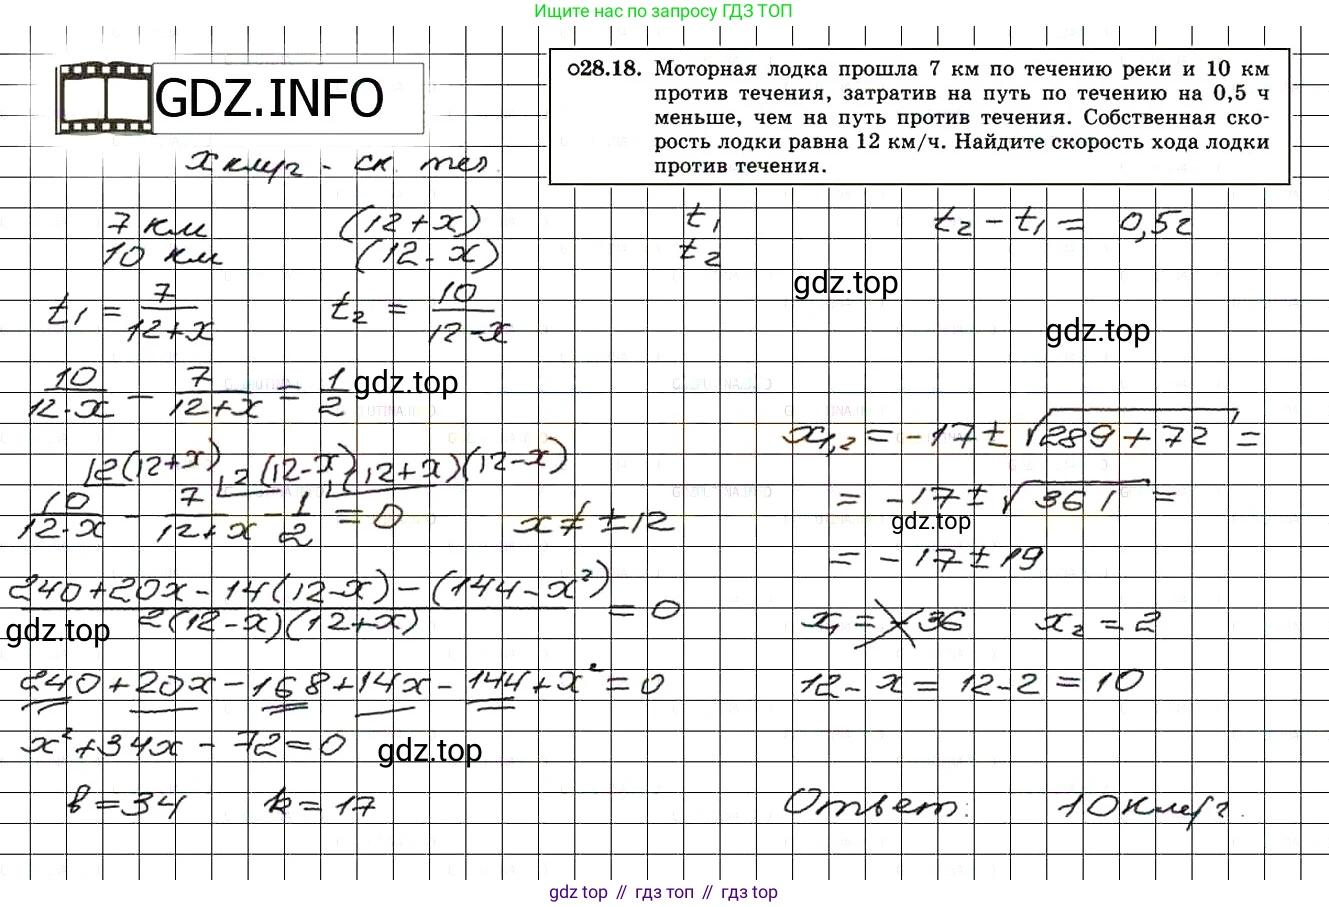 Ищите нас по запросу ГДЗ ТОП
GDZ.INFO
28.18. Моторная лодка прошла 7 км по течению реки и 10 км
против течения, затратив на путь по течению на 0,5 ч
меньше, чем на путь против течения. Собственная ско-
рость лодки равна 12 км/ч. Найдите скорость хода лодки
против течения.
x км/ч - ск. теч.
7 км (12+x) t₁ t₂ - t₁ = 0,5 ч
10 км (12-x) t₂
gdz.top
t₁ = 7/(12+x) t₂ = 10/(12-x)
gdz.top
10/(12-x) - 7/(12+x) = 1/2
gdz.top
2(12+x) 2(12-x) (12+x)(12-x)
10/(12-x) - 7/(12+x) - 1/2 = 0 x ≠ ±12
(240+20x-14(12-x)-(144-x²))/(2(12-x)(12+x)) = 0
gdz.top
240+20x-168+14x-144+x²=0
x²+34x-72=0
gdz.top
b=34 k=17
x₁,₂ = -17±√(289+72) =
= -17±√361 =
gdz.top
= -17±19
x₁ = -36 x₂ = 2
12-x = 12-2 = 10
Ответ: 10 км/ч.
gdz top // гдз топ // гдз top